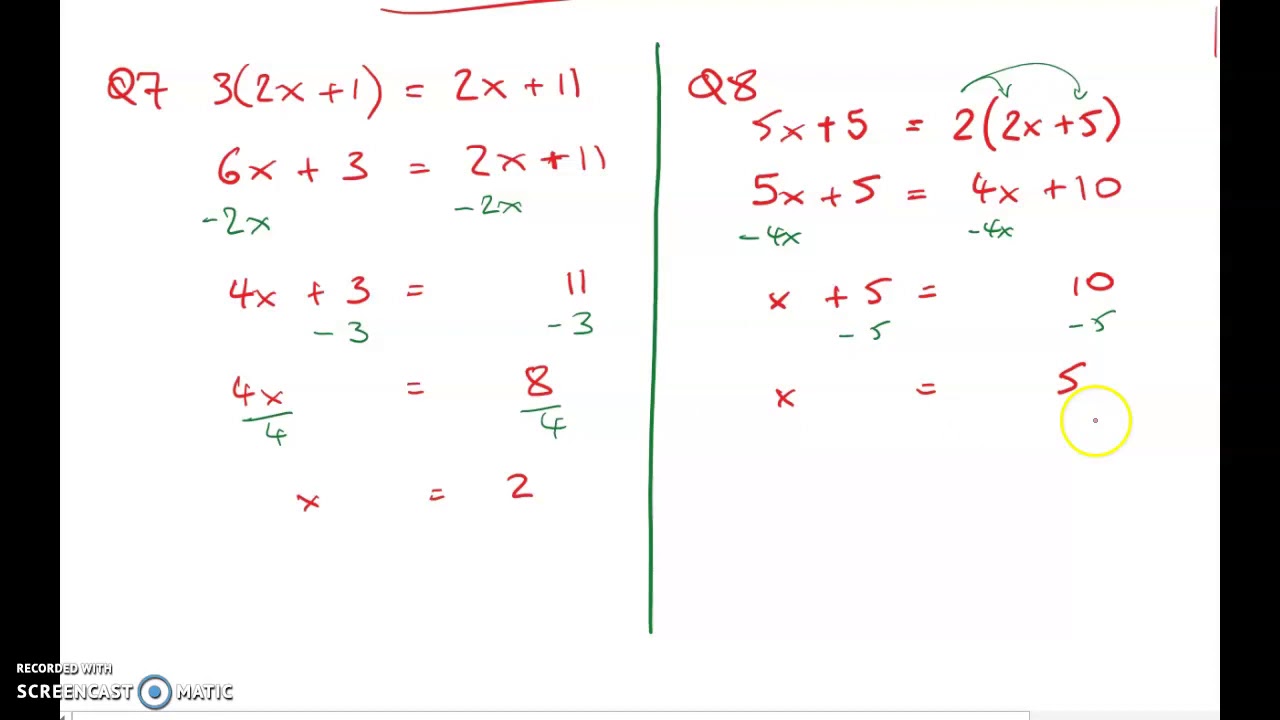 Q7 3(2x+1) = 2x + 11
6x + 3 = 2x + 11
-2x -2x
4x + 3 = 11
-3 -3
4x = 8
4 4
x = 2
Q8
5x + 5 = 2(2x+5)
5x + 5 = 4x + 10
-4x -4x
x + 5 = 10
-5 -5
x = 5
RECORDED WITH
SCREENCAST MATIC